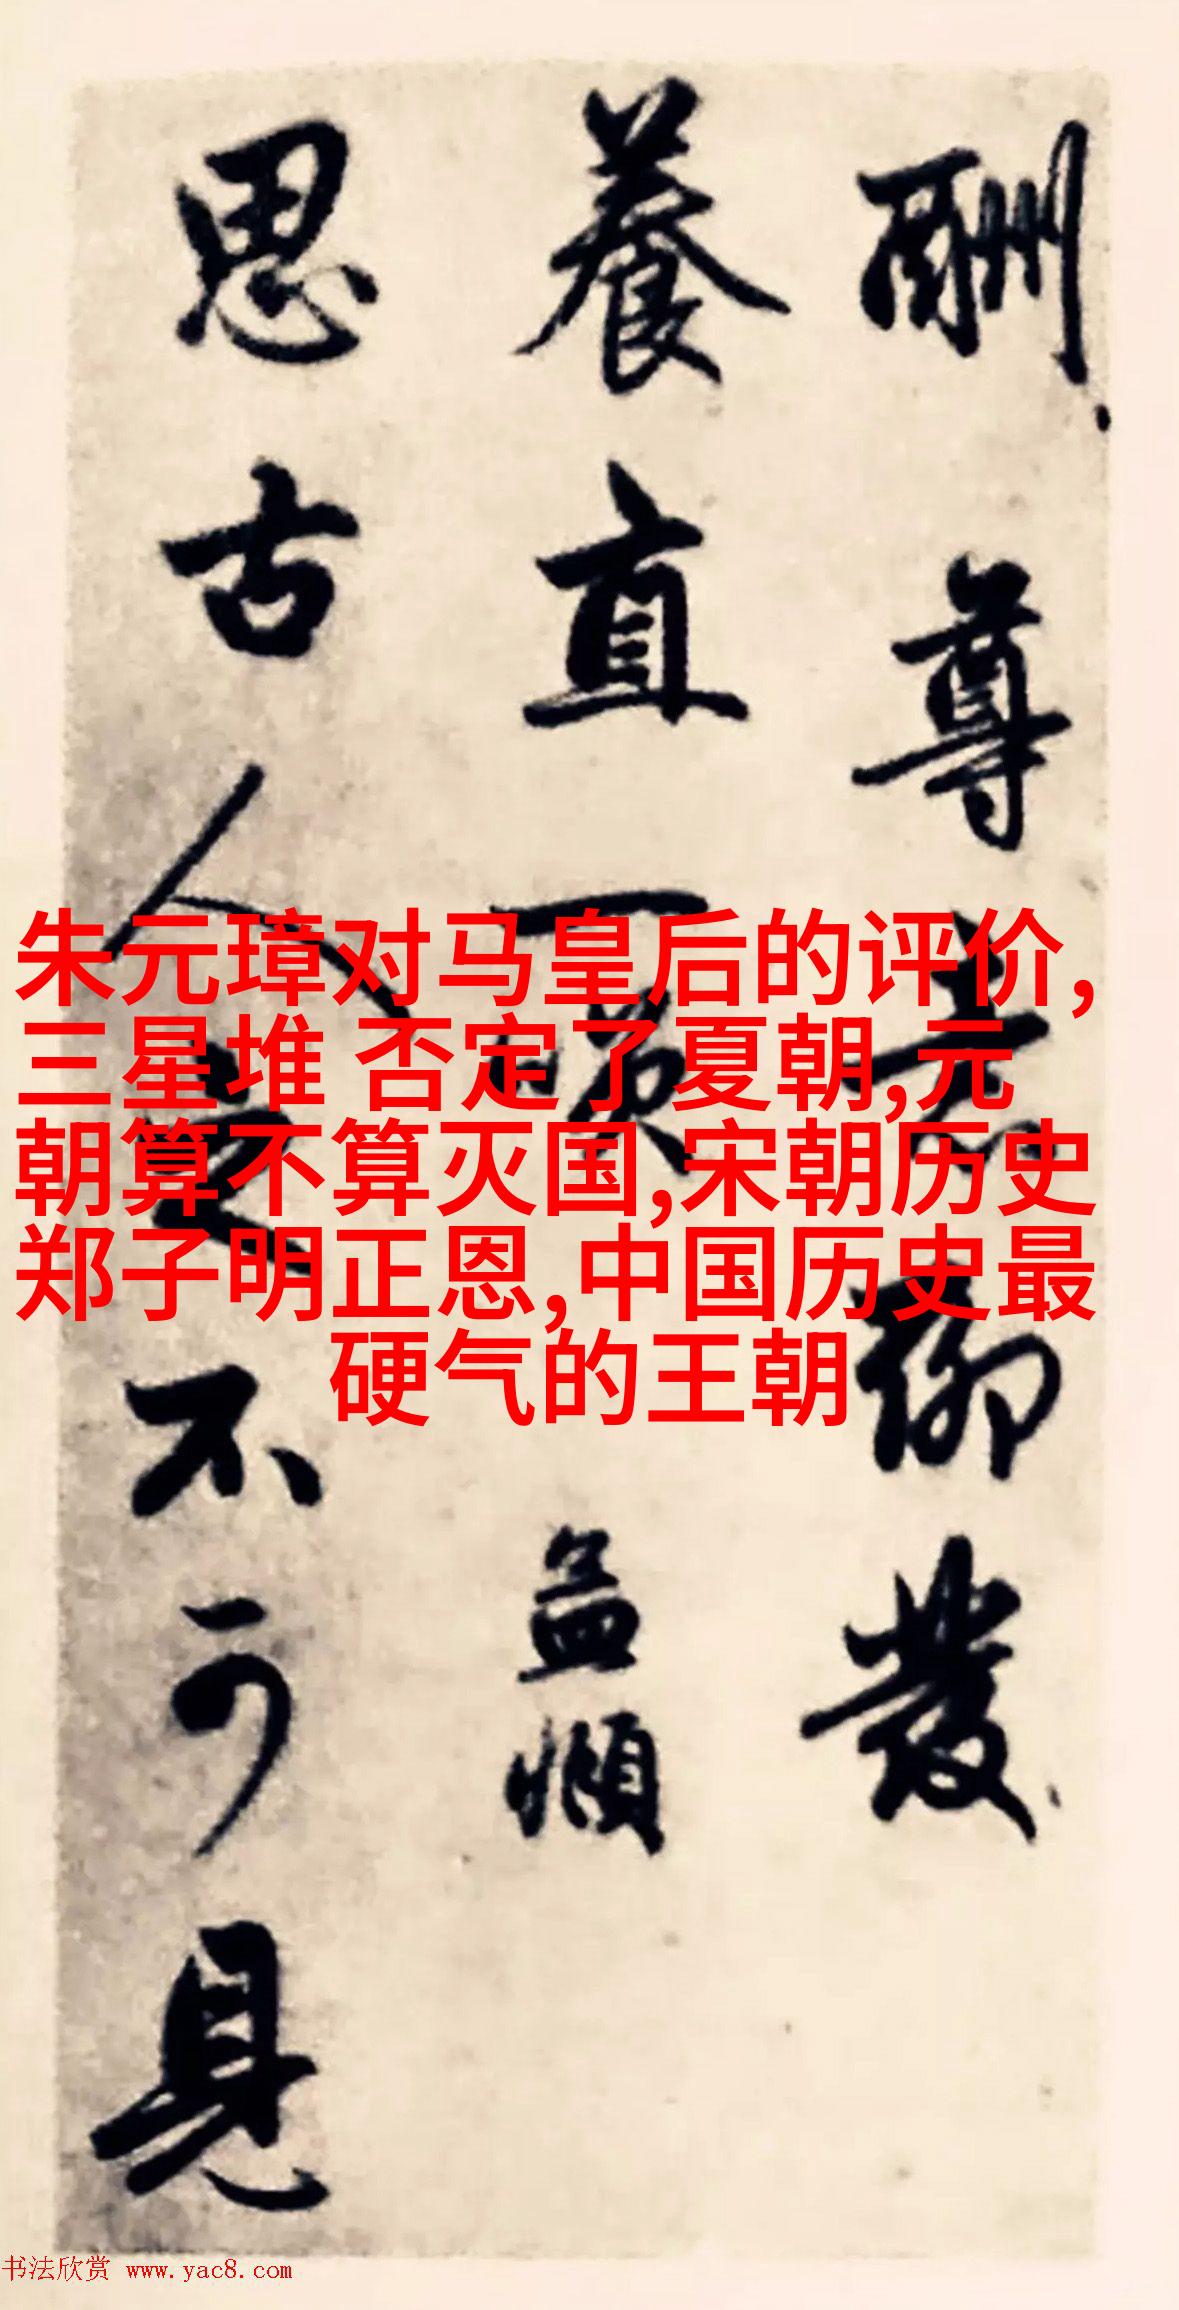 朱元璋对马皇后的评价,
三星堆 否定了夏朝,元
朝算不算灭国,宋朝历史
郑子明正恩,中国历史最
硬气的王朝
酬尊者聊發
養直一 孟頫
思古人不可見
书法欣赏 www.yac8.com